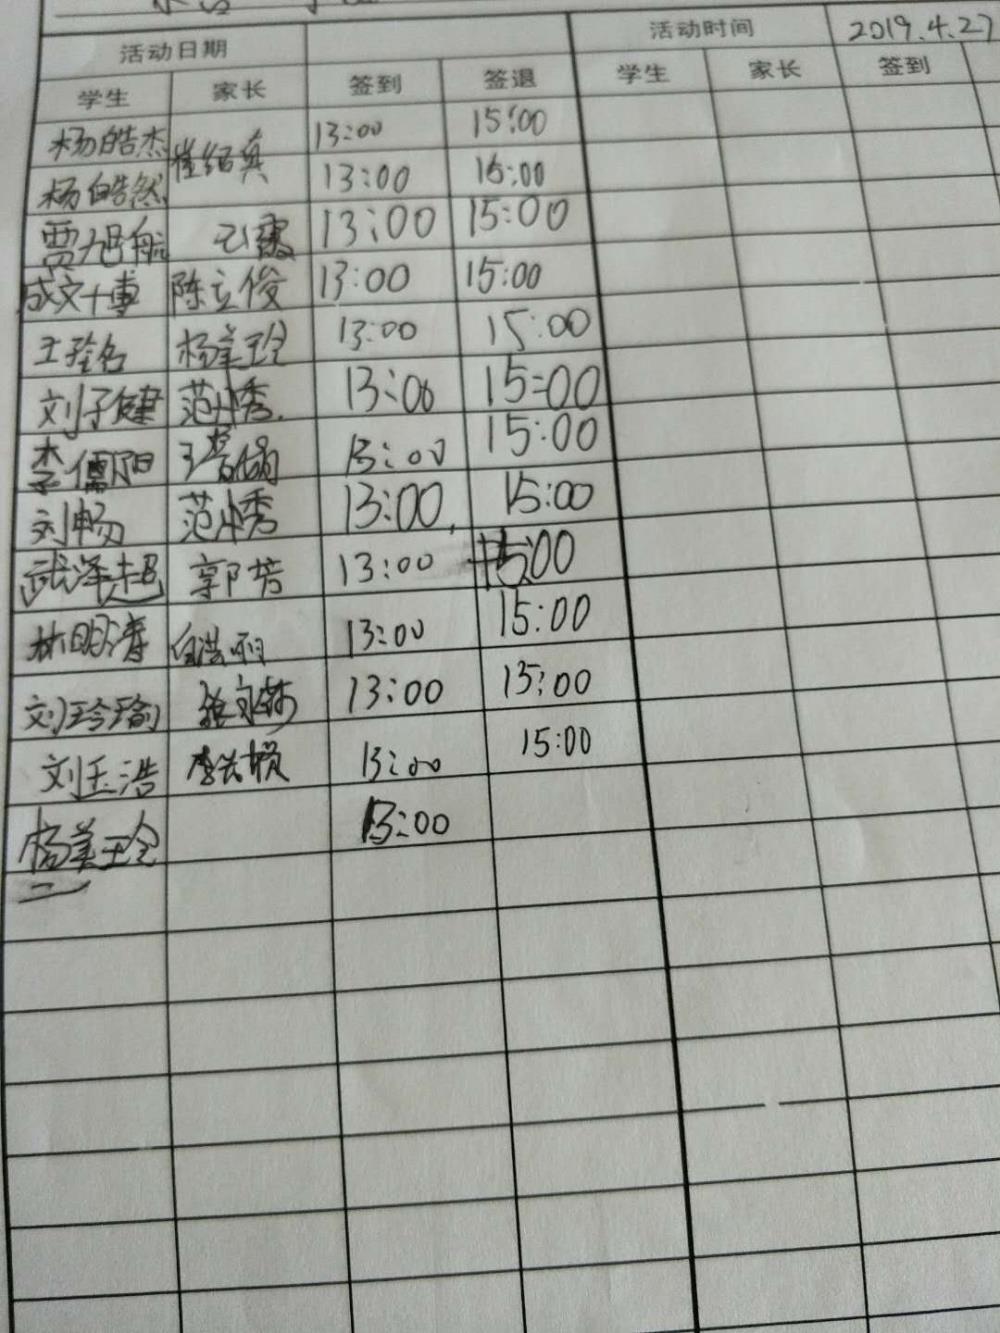 活动日期 活动时间 2019.4.27
学生 家长 签到 签退 学生 家长 签到
杨皓杰 13:00 15:00
杨皓然 13:00 15:00
贾旭航 13:00 15:00
成文博 陈立俊 13:00 15:00
王琀名 杨美玲 13:00 15:00
刘子健 范小秀 13:00 15:00
李儒阳 13:00 15:00
刘畅 范小秀 13:00 15:00
武泽超 郭芳 13:00 15:00
林明涛 13:00 15:00
刘玲瑜 13:00 15:00
刘玉浩 13:00 15:00
杨美玲 13:00